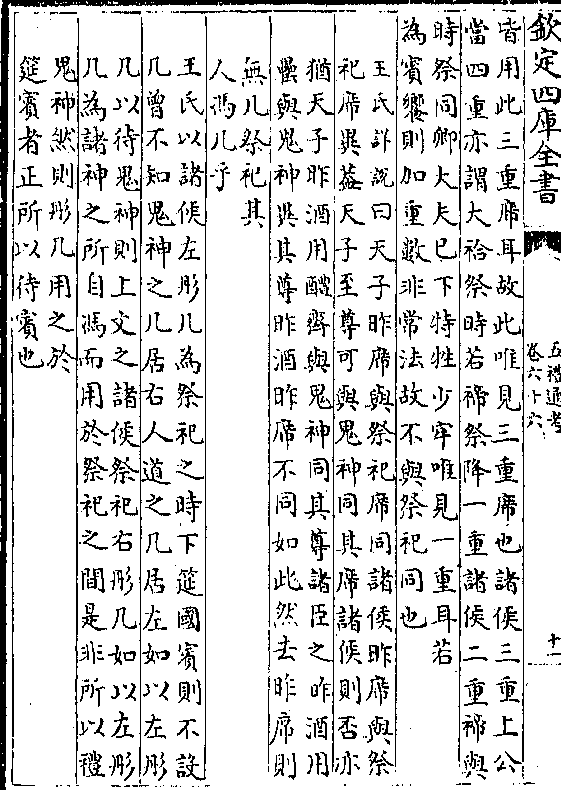 欽定四庫全書
五禮通考
卷六十六
十一
皆用此三重席耳故此唯見三重席也諸侯三重上公
當四重亦謂大祫祭時若禘祭降一重諸侯二重禘與
時祭同卿大夫已下特牲少牢唯見一重耳若
為賓饗則加重數非常法故不與祭祀同也
王氏詳說曰天子昨席與祭祀席同諸侯昨席與祭
祀席異葢天子至尊可與鬼神同其席諸侯則否亦
猶天子昨酒用醴齊與鬼神同其尊諸臣之昨酒用
罍與鬼神異其尊昨酒昨席不同如此然去昨席則
無几祭祀其
人馮几乎
王氏以諸侯左彤几為祭祀之時下筵國賓則不設
几曾不知鬼神之几居右人道之几居左如以左彤
几以待鬼神則上文之諸侯祭祀右彤几如以左彤
几為諸神之所自馮而用於祭祀之間是非所以禮
鬼神然則彤几用之於
筵賓者正所以待賓也